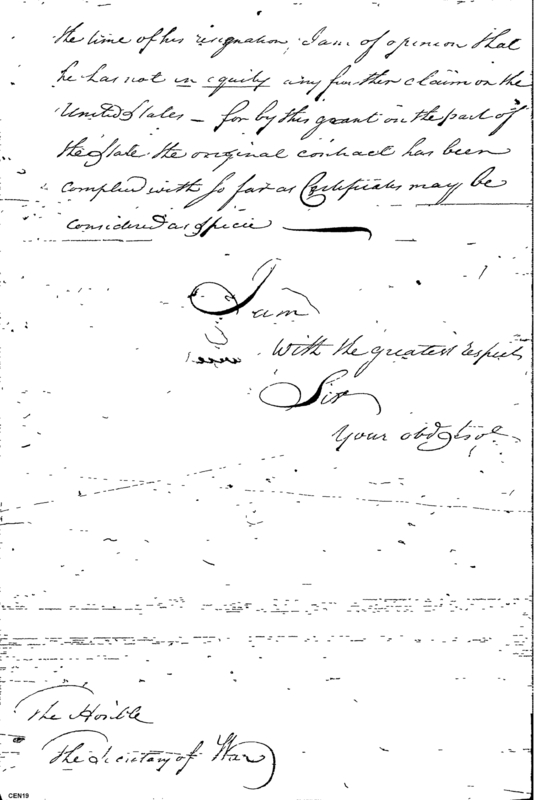 the time of his resignation, I am of opinion that
he has not in equity any further claim on the
United States – for by this grant on the part of
the State the original contract has been
complied with so far as Certificates may be
considered as specie
I am
With the greatest respect
Sir
Your obd
The Honble
The Secretary of War
CEN19